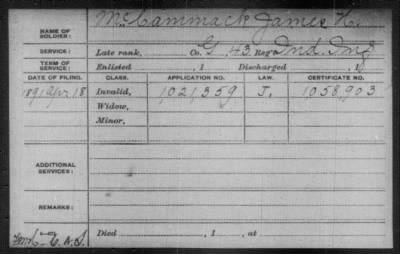 NAME OF SOLDIER: McCammack James H.
SERVICE: Late rank, Co. G, 43 Reg't Ind. Inf
TERM OF SERVICE: Enlisted , 1 Discharged , 1
DATE OF FILING. CLASS. APPLICATION NO. LAW. CERTIFICATE NO.
1891 Apr. 18 Invalid, 1,021,359 J. 1,058,903
Widow,
Minor,
ADDITIONAL SERVICES:
REMARKS:
Died , 1 , at